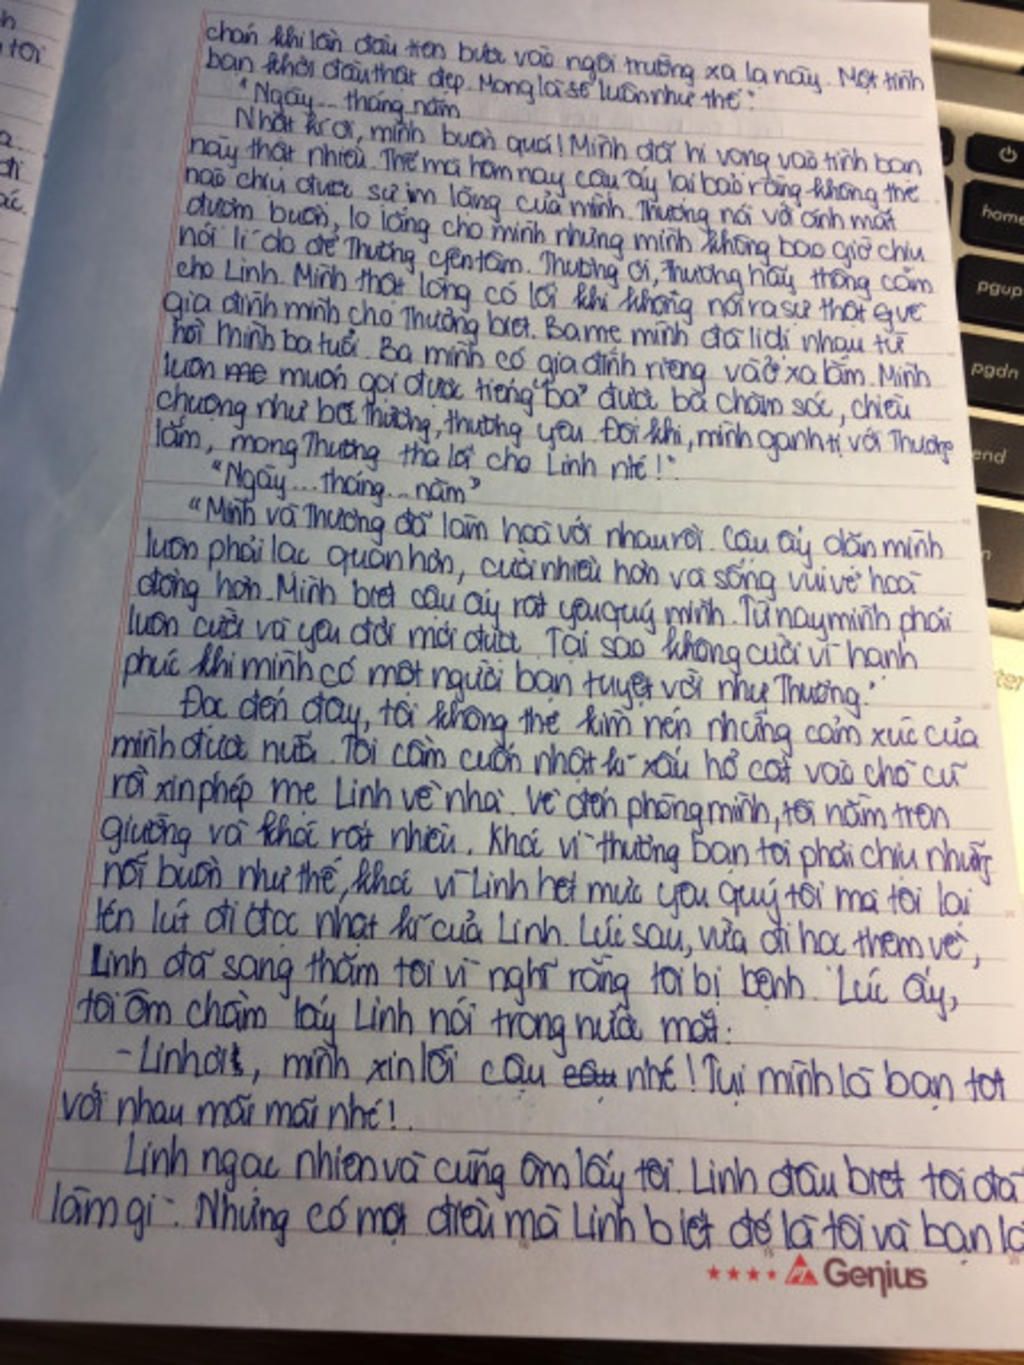 chân khi lần đầu tiên bước vào ngôi trường xa lạ này. Một tình
bạn khởi đầu thật đẹp. Mong là sẽ luôn như thế".
"Ngày... tháng năm
Nhật kí ơi, mình buồn quá! Mình đã hi vọng vào tình bạn
này thật nhiều. Thế mà hôm nay cậu ấy lại bảo rằng không thể
nào chịu được sự im lặng của mình. Thương nói với ánh mắt
đượm buồn, lo lắng cho mình nhưng mình không bao giờ chịu
nói lí do để Thương yên tâm. Thương ơi, Thương hãy thông cảm
cho Linh. Mình thật lòng có lỗi khi không nói ra sự thật về
gia đình mình cho Thương biết. Ba mẹ mình đã li dị nhau từ
hồi mình ba tuổi. Ba mình có gia đình riêng và ở xa lắm. Mình
luôn muốn gọi được tiếng "ba" được ba chăm sóc, chiều
chuộng như bố Thương, thương yêu. Đôi khi, mình ganh tị với Thương
lắm, mong Thương tha lỗi cho Linh nhé!"
"Ngày... tháng... năm"
"Mình và Thương đã làm hoà với nhau rồi. Cậu ấy dặn mình
luôn phải lạc quan hơn, cười nhiều hơn và sống vui vẻ hoà
đồng hơn. Mình biết cậu ấy rất yêu quý mình. Từ nay mình phải
luôn cười và yêu đời mới được. Tại sao không cười vì hạnh
phúc khi mình có một người bạn tuyệt vời như Thương."
Đọc đến đây, tôi không thể kìm nén những cảm xúc của
mình được nữa. Tôi cầm cuốn nhật kí xấu hổ cất vào chỗ cũ
rồi xin phép mẹ Linh về nhà. Về đến phòng mình, tôi nằm trên
giường và khóc rất nhiều. Khóc vì thương bạn tôi phải chịu những
nỗi buồn như thế, khóc vì Linh hết mực yêu quý tôi mà tôi lại
lén lút đi đọc nhật kí của Linh. Lúc sau, vừa đi học thêm về,
Linh đã sang thăm tôi vì nghĩ rằng tôi bị bệnh. Lúc ấy,
tôi ôm chầm lấy Linh nói trong nước mắt:
- Linh ơi, mình xin lỗi cậu nhé! Tụi mình là bạn tốt
với nhau mãi mãi nhé!.
Linh ngạc nhiên và cũng ôm lấy tôi. Linh đâu biết tôi đã
làm gì. Nhưng có một điều mà Linh biết đó là tôi và bạn là
Genius
home
pgup
pgdn
end